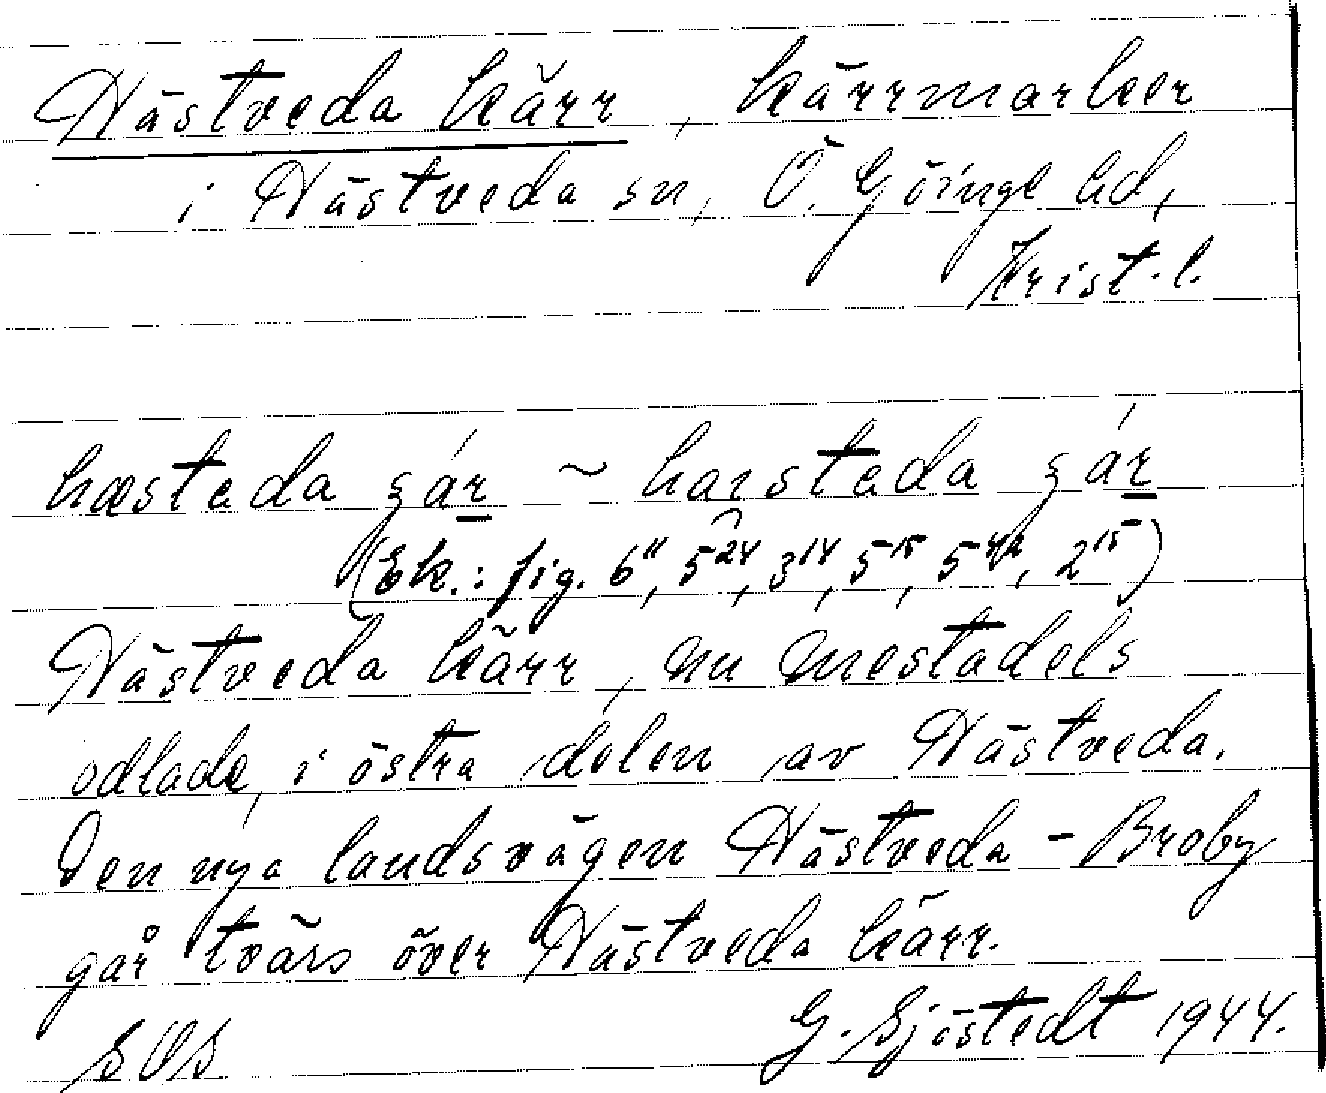 Hästveda kärr, kärrmarker
i Hästveda sn, Ö. Göinge hd,
Krist. l.
hæsteda
(Ek.: fig. 6¹¹, 5²⁴, 3¹⁴, 5¹⁵, 2¹⁵)
Hästveda kärr, nu mestadels
odlade, i östra delen av Hästveda.
Den nya landsvägen Hästveda - Broby
går tvärs över Hästveda kärr.
SOS G. Sjöstedt 1944.